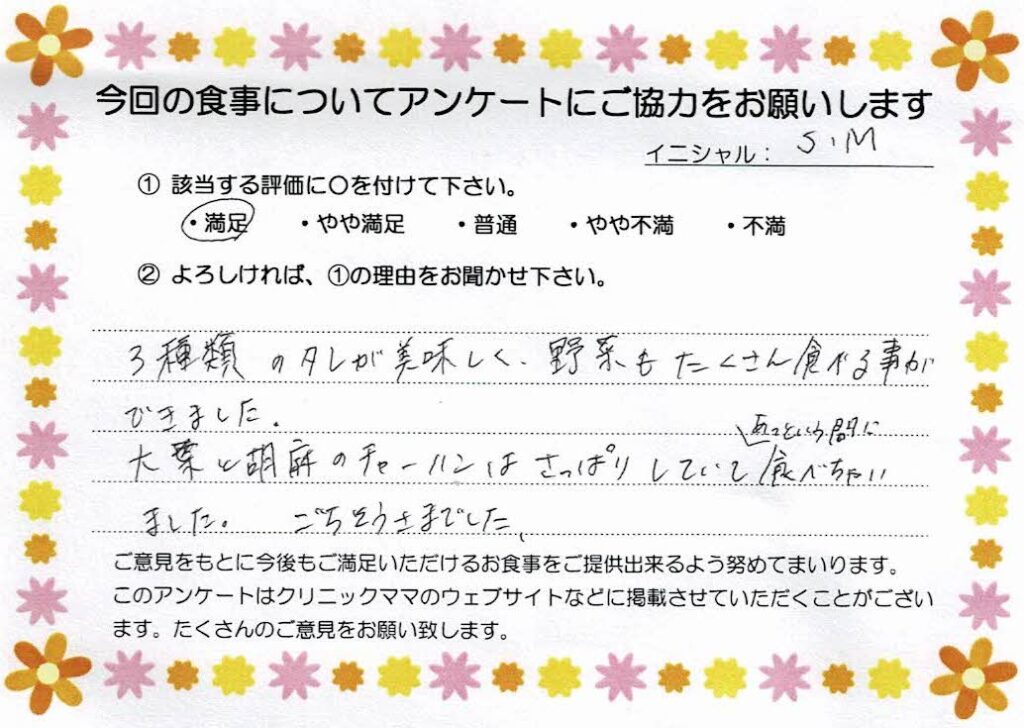 今回の食事についてアンケートにご協力をお願いします
イニシャル： S.M
① 該当する評価に〇を付けて下さい。
・満足 ・やや満足 ・普通 ・やや不満 ・不満
② よろしければ、①の理由をお聞かせ下さい。
3種類のタレが美味しく、野菜もたくさん食べる事が
できました。
あっという間に
大葉と胡麻のチャーハンはさっぱりしていて食べちゃい
ました。 ごちそうさまでした。
ご意見をもとに今後もご満足いただけるお食事をご提供出来るよう努めてまいります。
このアンケートはクリニックママのウェブサイトなどに掲載させていただくことがござい
ます。たくさんのご意見をお願い致します。